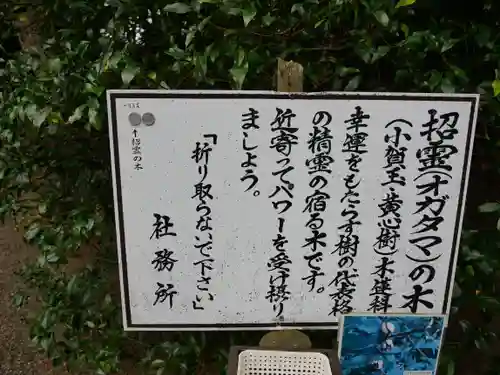 招霊(オガタマ)の木
(小賀玉、黄心樹)木蓮科
幸運をもたらす樹の代表格
の精霊の宿る木です。
近寄ってパワーを受け摂り
ましょう。
「折り取らないで下さい」
社務所
↑招霊の木